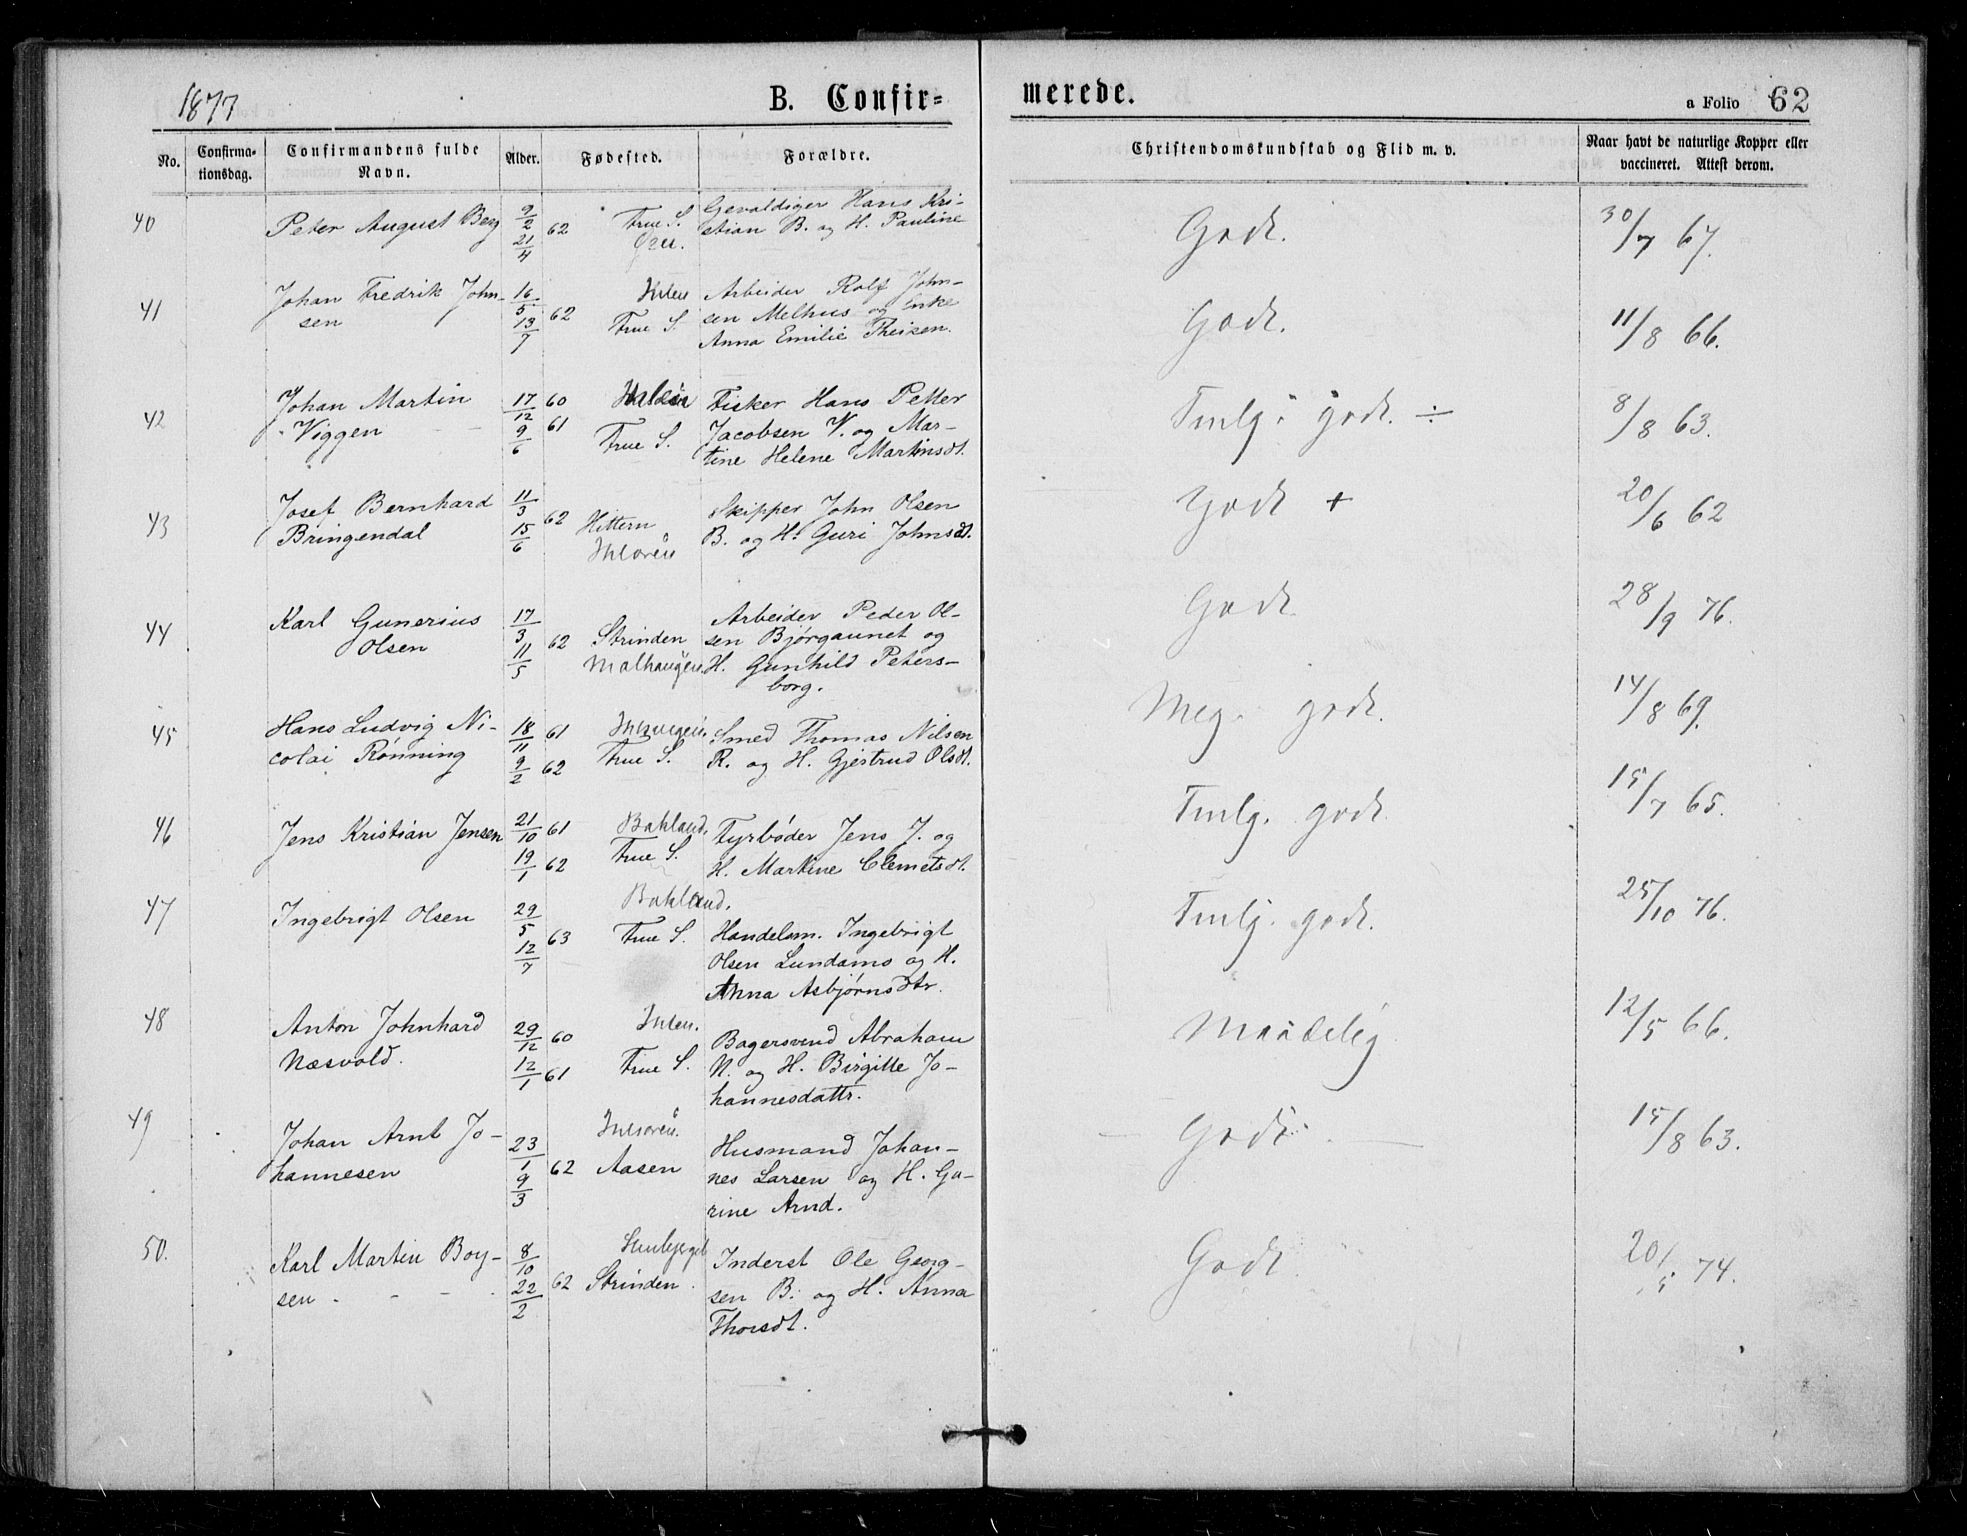 1877
B. Confir=
merede.
a Folio 62
No.
Confirma-
tionsdag.
Confirmandens fulde
Navn.
Alder.
Fødested.
Forældre.
Christendomskundskab og Flid m. v.
Naar havt de naturlige Kopper eller
vaccineret. Attest derom.
40
Peter August Berg
9/2 21/4 62
Frue S.
Gevaldiger Hans Kri-
stian B. og H. Pauline
Godt.
30/7 67.
41
Johan Fredrik John-
sen
16/5 13/7 62
Ihlen
Frue S.
Arbeider Rolf John-
sen Melhus og Enke
Anna Emilie Theisen.
Godt.
11/8 66.
42
Johan Martin
Viggen
17/12 60
9/6 61
Ihlen
Frue S.
Fisker Hans Petter
Jacobsen V. og Mar-
tine Helene Martinsdt.
Tmlg. godt. ÷
8/8 63.
43
Josef Bernhard
Bringendal
11/3 15/6 62
Hittern
Ihløren
Skipper John Olsen
B. og H. Guri Johnsdt.
Godt +
20/6 62
44
Karl Gunerius
Olsen
17/3 11/5 62
Strinden
Malhaugen.
Arbeider Peder Ol-
sen Bjørgaunet og
H. Gunhild Peters-
borg.
Godt
28/9 76.
45
Hans Ludvig Ni-
colai Rønning
18/11 61
9/2 62
Frue S.
Smed Thomas Nilsen
R. og H. Gjertrud Olsdt.
Meg. godt.
14/8 69.
46
Jens Kristian Jensen
21/10 61
19/1 62
Bakland.
Frue S.
Fyrbøder Jens J. og
H. Martine Clemetsdt.
Tmlg. godt.
15/7 65.
47
Ingebrigt Olsen
29/5 12/7 63
Bakland.
Frue S.
Handelsm. Ingebrigt
Olsen Lundamo og H.
Anna Asbjørnsdtr.
Tmlg. godt.
25/10 76.
48
Anton Johnhard
Næsvold.
29/12 60
12/1 61
Ihlen.
Frue S.
Bagersvend Abraham
N. og H. Birgitte Jo-
hannesdattr.
Maadelig
12/5 66.
49
Johan Arnt Jo-
hannesen
23/1 9/3 62
Ihløren.
Aasen
Husmand Johan-
nes Larsen og H. Ga-
rine Arnd.
Godt
15/8 63.
50.
Karl Martin Boy-
sen
8/10 22/2 62
Strinden
Inderst Ole Georg-
sen B. og H. Anna
Thorsdt.
Godt
20/5 74.